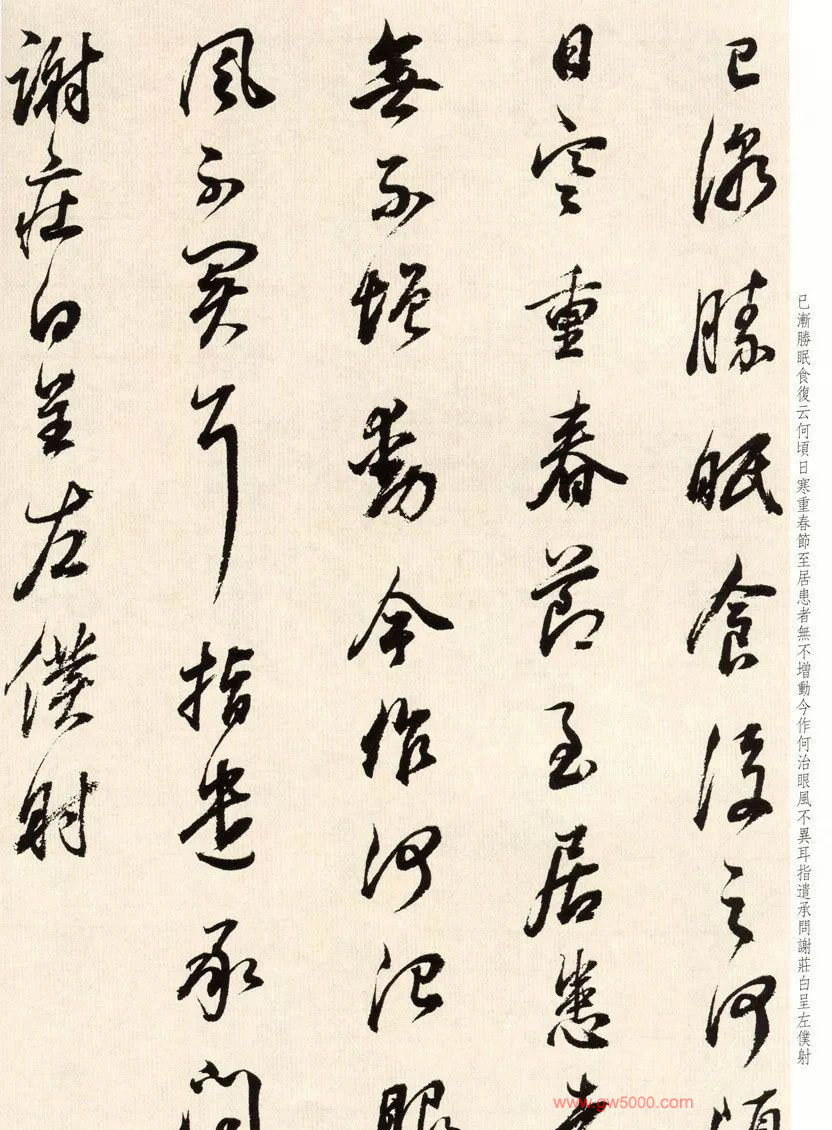 已漸勝眠食復云何頃
日寒重春節至居患者
無不增動今作何治眼
風不異耳指遣承問
謝莊白呈左僕射
已漸勝眠食復云何頃日寒重春節至居患者無不增動今作何治眼風不異耳指遣承問謝莊白呈左僕射
www.gw5000.com